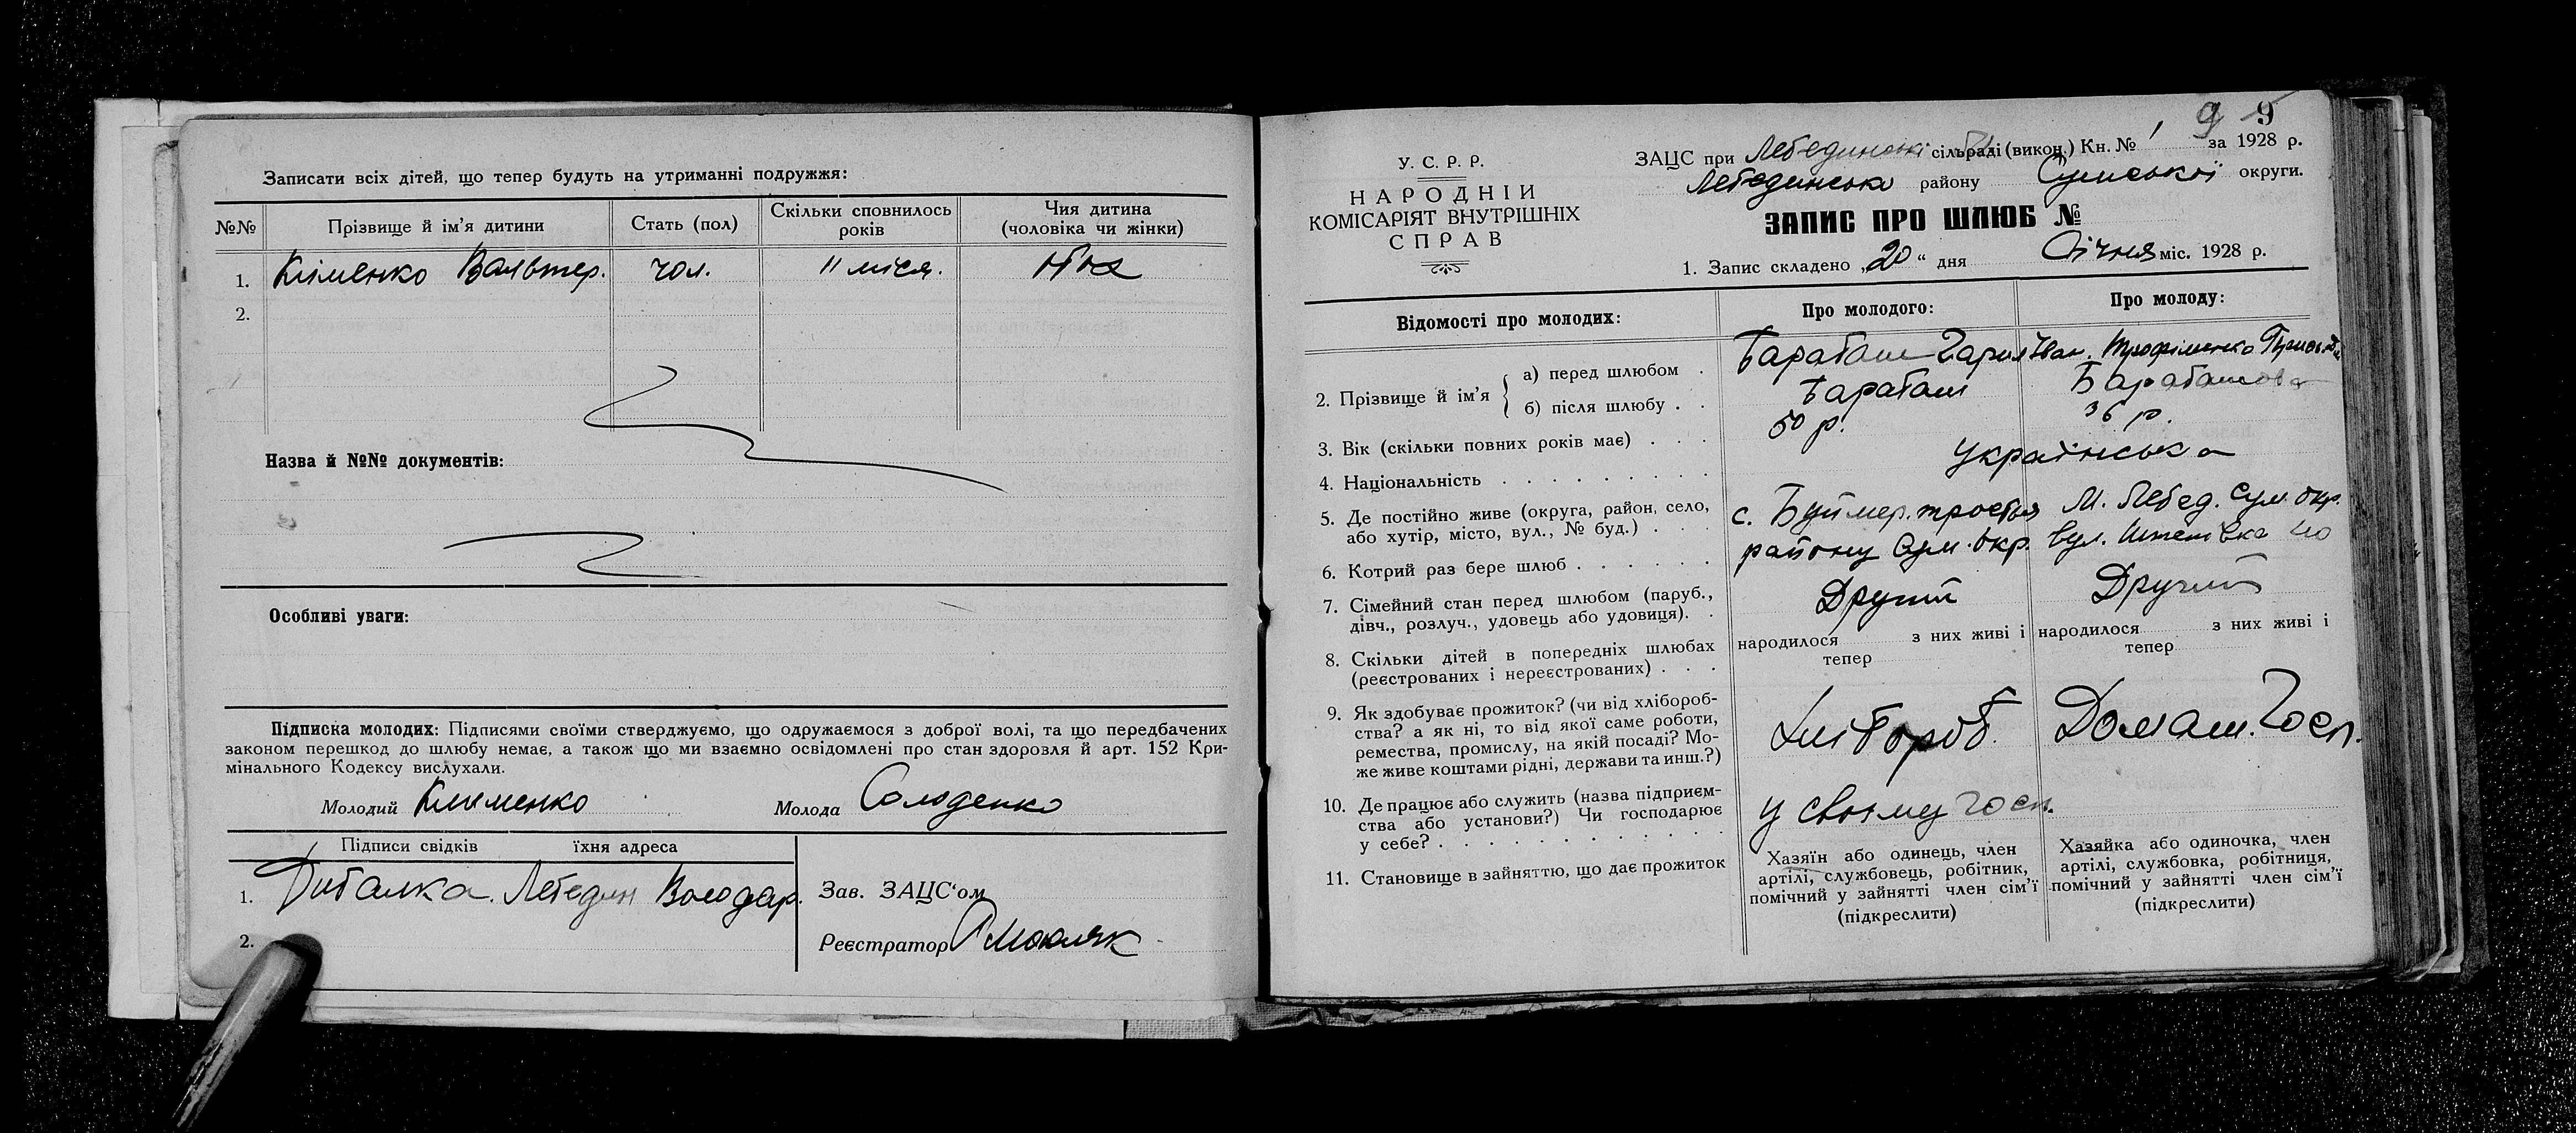 Записати всіх дітей, що тепер будуть на утриманні подружжя:
№№ Прізвище й ім'я дитини Стать (пол) Скільки сповнилось років Чия дитина (чоловіка чи жінки)
1. Кліменко Вальтер. чол. 11 міся.
2.
Назва й №№ документів:
Особливі уваги:
Підписка молодих: Підписями своїми стверджуємо, що одружаємося з доброї волі, та що передбачених
законом перешкод до шлюбу немає, а також що ми взаємно освідомлені про стан здоровля й арт. 152 Кри-
мінального Кодексу вислухали.
Молодий Клименко Молода Солоденко
Підписи свідків їхня адреса
1. Лебедин Володар.
2.
Зав. ЗАЦС'ом
Реєстратор
9 9
У. С. Р. Р.
НАРОДНІЙ
КОМІСАРІЯТ ВНУТРІШНІХ
СПРАВ
ЗАЦС при Лебединські сільраді (викон.) Кн. № 1 за 1928 р.
Лебединсько району Сумської округи.
ЗАПИС ПРО ШЛЮБ №
1. Запис складено „20" дня Січня міс. 1928 р.
Відомості про молодих: Про молодого: Про молоду:
2. Прізвище й ім'я
а) перед шлюбом . Барабаш Іван. Трофіменко
б) після шлюбу . . Барабаш Барабашова
3. Вік (скільки повних років має) . . . 50 р. 36 р.
4. Національність . . . . . . . . . Українська
5. Де постійно живе (округа, район, село,
або хутір, місто, вул., № буд.) . . .
с. Буймер. М. Лебед. Сум. окр.
району Сум. окр. вул.
6. Котрий раз бере шлюб . . . . . .
Другий Другий
7. Сімейний стан перед шлюбом (паруб.,
дівч., розлуч., удовець або удовиця). .
8. Скільки дітей в попередніх шлюбах
(реєстрованих і нереєстрованих) . . .
народилося з них живі і
тепер
народилося з них живі і
тепер
9. Як здобуває прожиток? (чи від хлібороб-
ства? а як ні, то від якої саме роботи,
ремества, промислу, на якій посаді? Мо-
же живе коштами рідні, держави та инш.?)
Хлібороб. Домаш. Госп.
10. Де працює або служить (назва підприєм-
ства або установи?) Чи господарює
у себе? . . . . . . . . . . . .
у своїму госп.
11. Становище в зайняттю, що дає прожиток
Хазяїн або одинець, член
артілі, службовець, робітник,
помічний у зайнятті член сім'ї
(підкреслити)
Хазяйка або одиночка, член
артілі, службовка, робітниця,
помічний у зайнятті член сім'ї
(підкреслити)